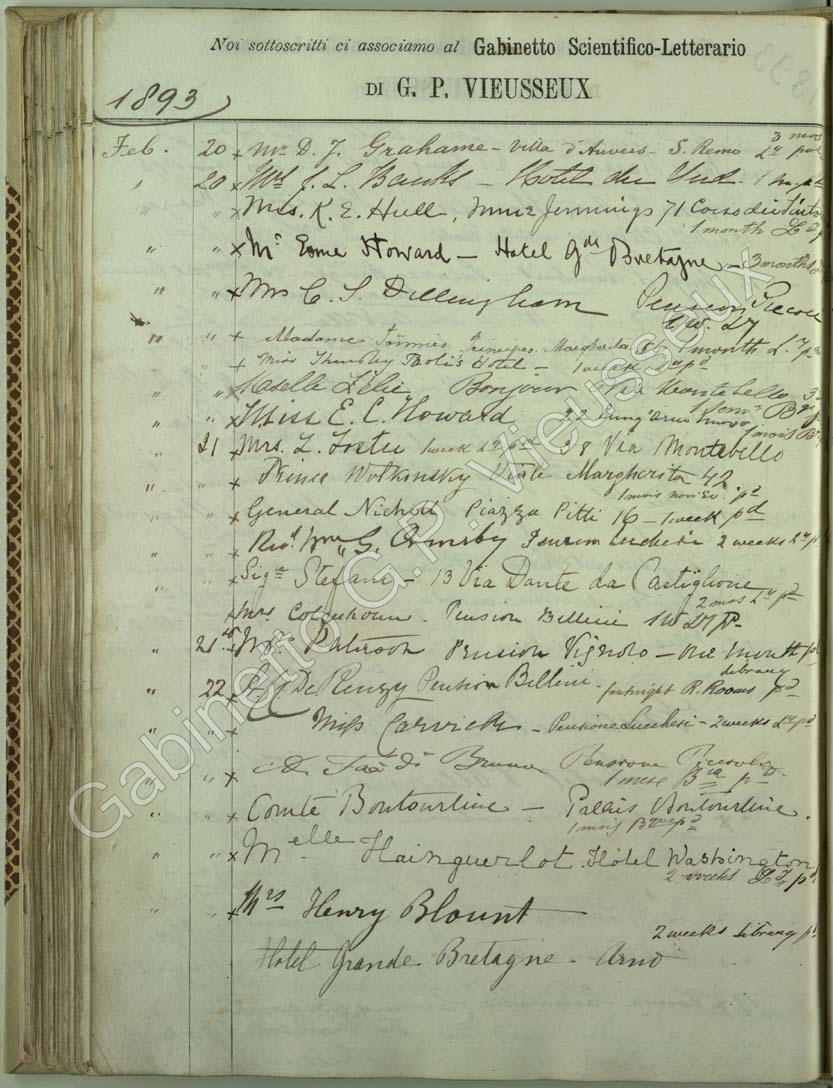 Noi sottoscritti ci associamo al Gabinetto Scientifico-Letterario
DI G. P. VIEUSSEUX
1893
3 mos
Feb. 20 x Mr D. J. Grahame - Villa d'Anvers - S. Remo Ly pd
" 20 x J. L. Banks - Hotel du Sud. 1
" " x Mrs. K. E. Hull, Jennings 71 Corso dei Tintori
1 month
" " x Mr Esme Howard - Hotel Gde Bretagne - 3 months
" " x Mrs C. S. Dillingham Pension Piccoli
1 w. Ly
" " x Madame Principe Margherita 1 month Ly pd
" x Miss Paoli's Hotel - 1 week Ly pd
" " Melle Zélie Bonjour Via Montebello
" " x Miss E. C. Howard 22 Lung'Arno nuovo 1 mois
21 x Mrs. L. Foster 1 week Ly pd 38 Via Montebello
" " x Prince Wolkonsky Viale Margherita 42.
1 mois pd
" " x General Nicholl Piazza Pitti 16 - 1 week pd
" " x Revd Wm G. Ormsby Pension Lucchesi 2 weeks Ly pd
" " x Siga Stefani - 13 Via Dante da Castiglione
2 mos Ly pd
" " x Mrs Colquhoun. Pension Bellini 1 w Ly pd
" 21 x Mrs Paterson Pension Vignolo - one month pd
Library
" 22 x De Renzy Pension Bellini - fortnight R. Rooms pd
" " x Miss Carwick - Pensione Lucchesi - 2 weeks Ly pd
" " x A Faà di Bruno Pensione Piccioli
1 mese pd
" " x Comte Boutourline - Palais Boutourline.
1 mois pd
" " x Melle Hainguerlot. Hôtel Washington
2 weeks Ly pd
" " x Mrs Henry Blount
2 weeks Library pd
Hotel Grande Bretagne - Arno
Gabinetto G.P. Vieusseux